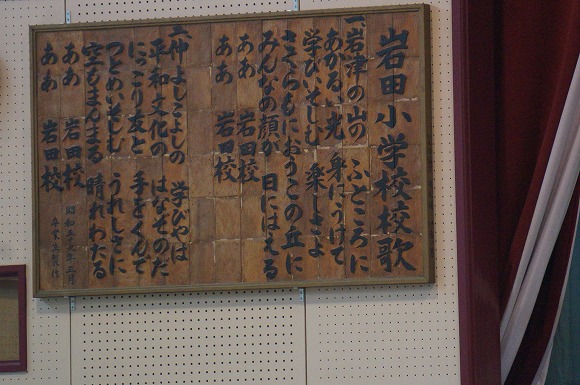 岩田小学校校歌
一、岩津の山の ふところに
あかるい光 身にうけて
学びいそしむ 楽しさよ
さくらもにおうこの丘に
みんなの顔が 日にはえる
ああ 岩田校
ああ 岩田校
二、仲よしこよしの 学びやは
平和文化の はなぞのだ
にっこり友と 手をくんで
つとめいそしむ うれしさに
空もまんまる 晴れわたる
ああ 岩田校
ああ 岩田校
卒業生製作